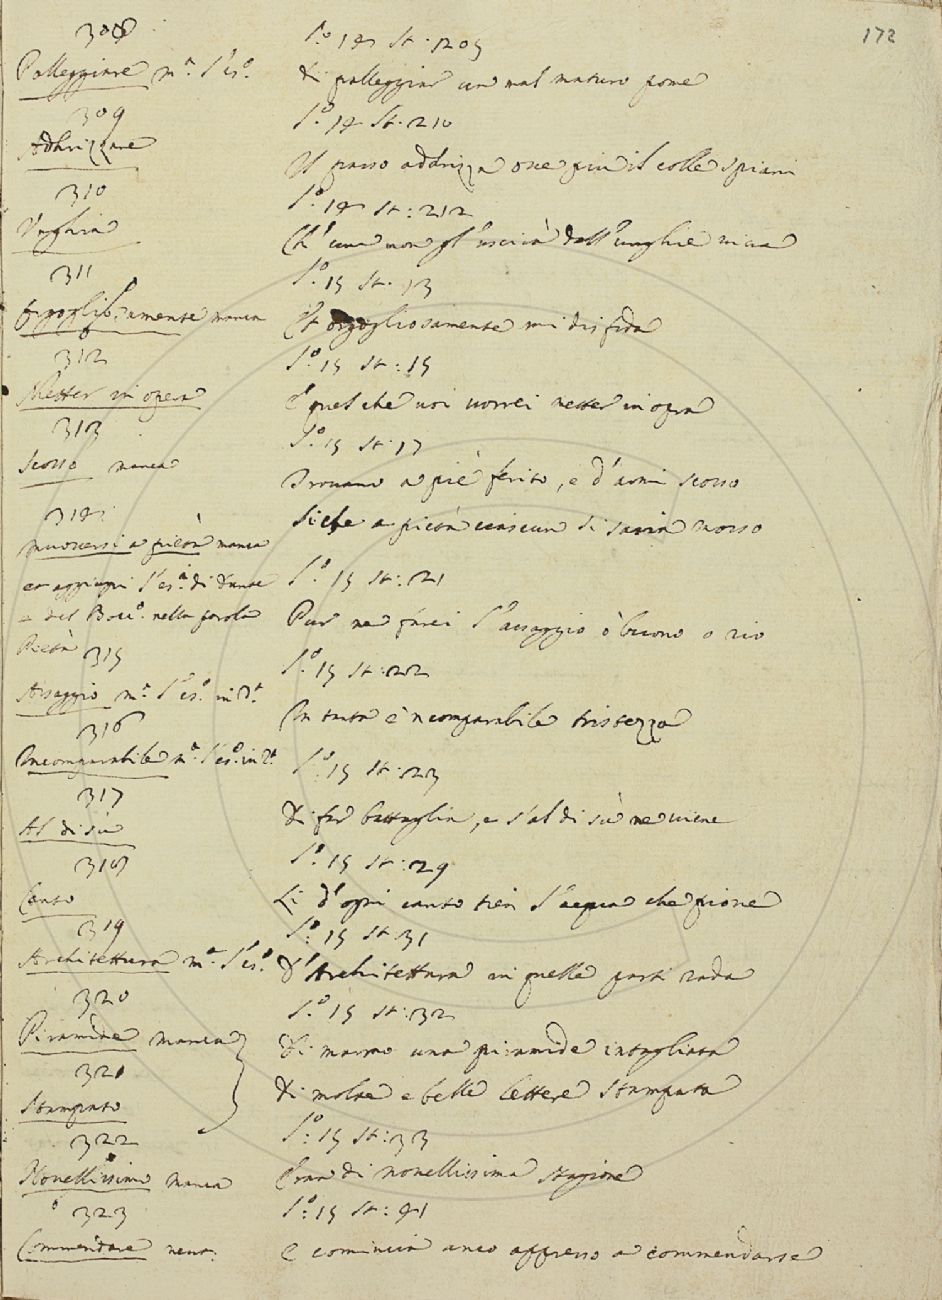 172
308
Palleggiare m.ª l'es.º
l.º 14 St. 209
di palleggiar un mal maturo pome
309
Addrizzare
l.º 14 St. 210
Il passo addrizza ove più il colle spiani
310
Unghia
l.º 14 St: 212
Ch'una non gl'uscirà dall'unghie viva
311
Orgogliosamente manca
l.º 15 St. 13
Et orgogliosamente mi disfida
312
Metter in opera
l.º 15 St: 15
E quel che voi vorrei metter in opra
313
Scosso manca
l.º 15 St: 17
Trovano a piè ferito, e d'armi scosso
314
muoversi a pietà manca
et aggiugni l'es.º di Dante
e del Bocc.º nella parola
Pietà
Siche a pietà ciascun si saria mosso
315
Assaggio m.ª l'es.º in
l.º 15 St: 21
Pur ne farei l'assaggio ò buono o rio
316
Incomparabile m.ª l'es.º in
l.º 15 St: 22
In tanta è ncomparabile tristezza
317
Al di sù
l.º 15 St: 23
Di far battaglia, e s'al di sù ne viene
318
Canto
l.º 15 St: 29
Li d'ogni canto tien l'acqua che piove
319
Architettura m.ª l'es.º
l.º 15 St: 31
D'Architettura in quelle parti rada
320
Piramide manca
l.º 15 St: 32
Di marmo una piramide intagliata
321
Stampato
Di molte e belle lettere stampata
322
Novellissimo manca
l.º 15 St: 33
Era di novellissima stagione
323
Commendare neut.
l.º 15 St: 41
E comincia anco appresso a commendarse